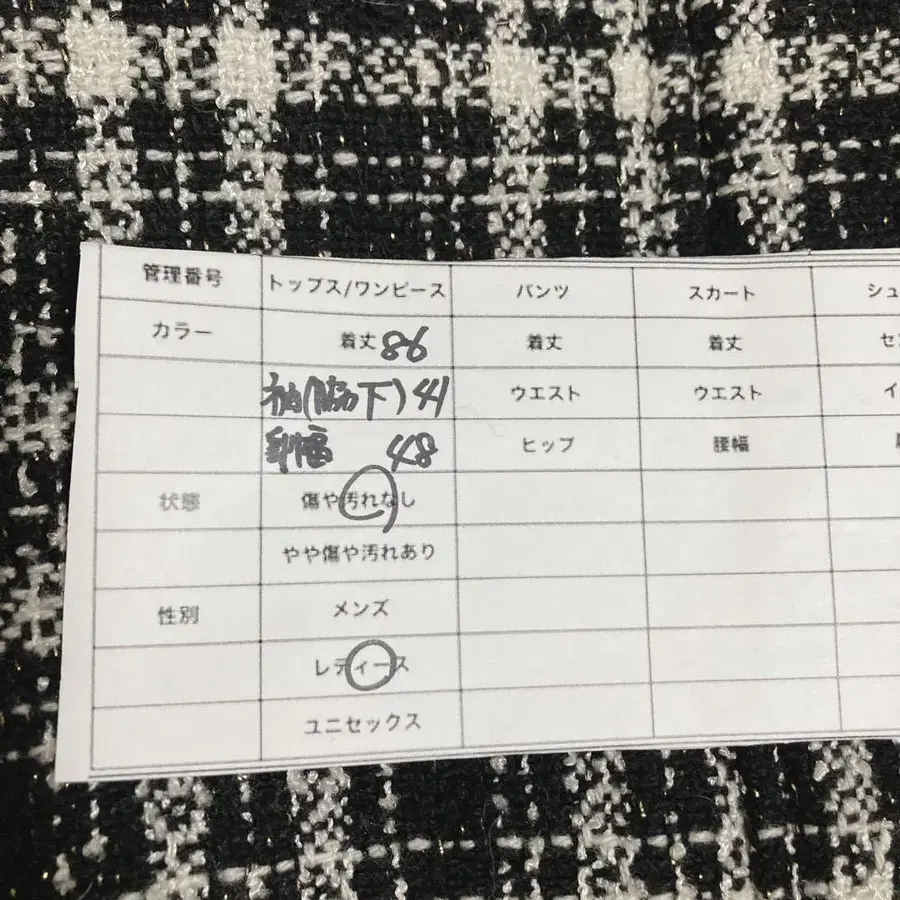 管理番号 トップス/ワンピース パンツ スカート シュ
カラー 着丈 86 着丈 着丈 セン
袖(脇下) 41 ウエスト ウエスト イ
身幅 48 ヒップ 腰幅
状態 傷や汚れなし
やや傷や汚れあり
性別 メンズ
レディース
ユニセックス